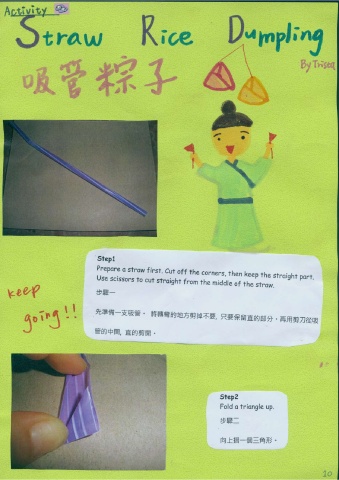 Activity
Straw Rice Dumpling
By Trisea
吸管粽子
Step1
Prepare a straw first. Cut off the corners, then keep the straight part.
Use scissors to cut straight from the middle of the straw.
步驟一
先準備一支吸管。 將轉彎的地方剪掉不要, 只要保留直的部分。再用剪刀從吸
管的中間, 直的剪開。
keep
going!!
Step2
Fold a triangle up.
步驟二
向上摺一個三角形。
20